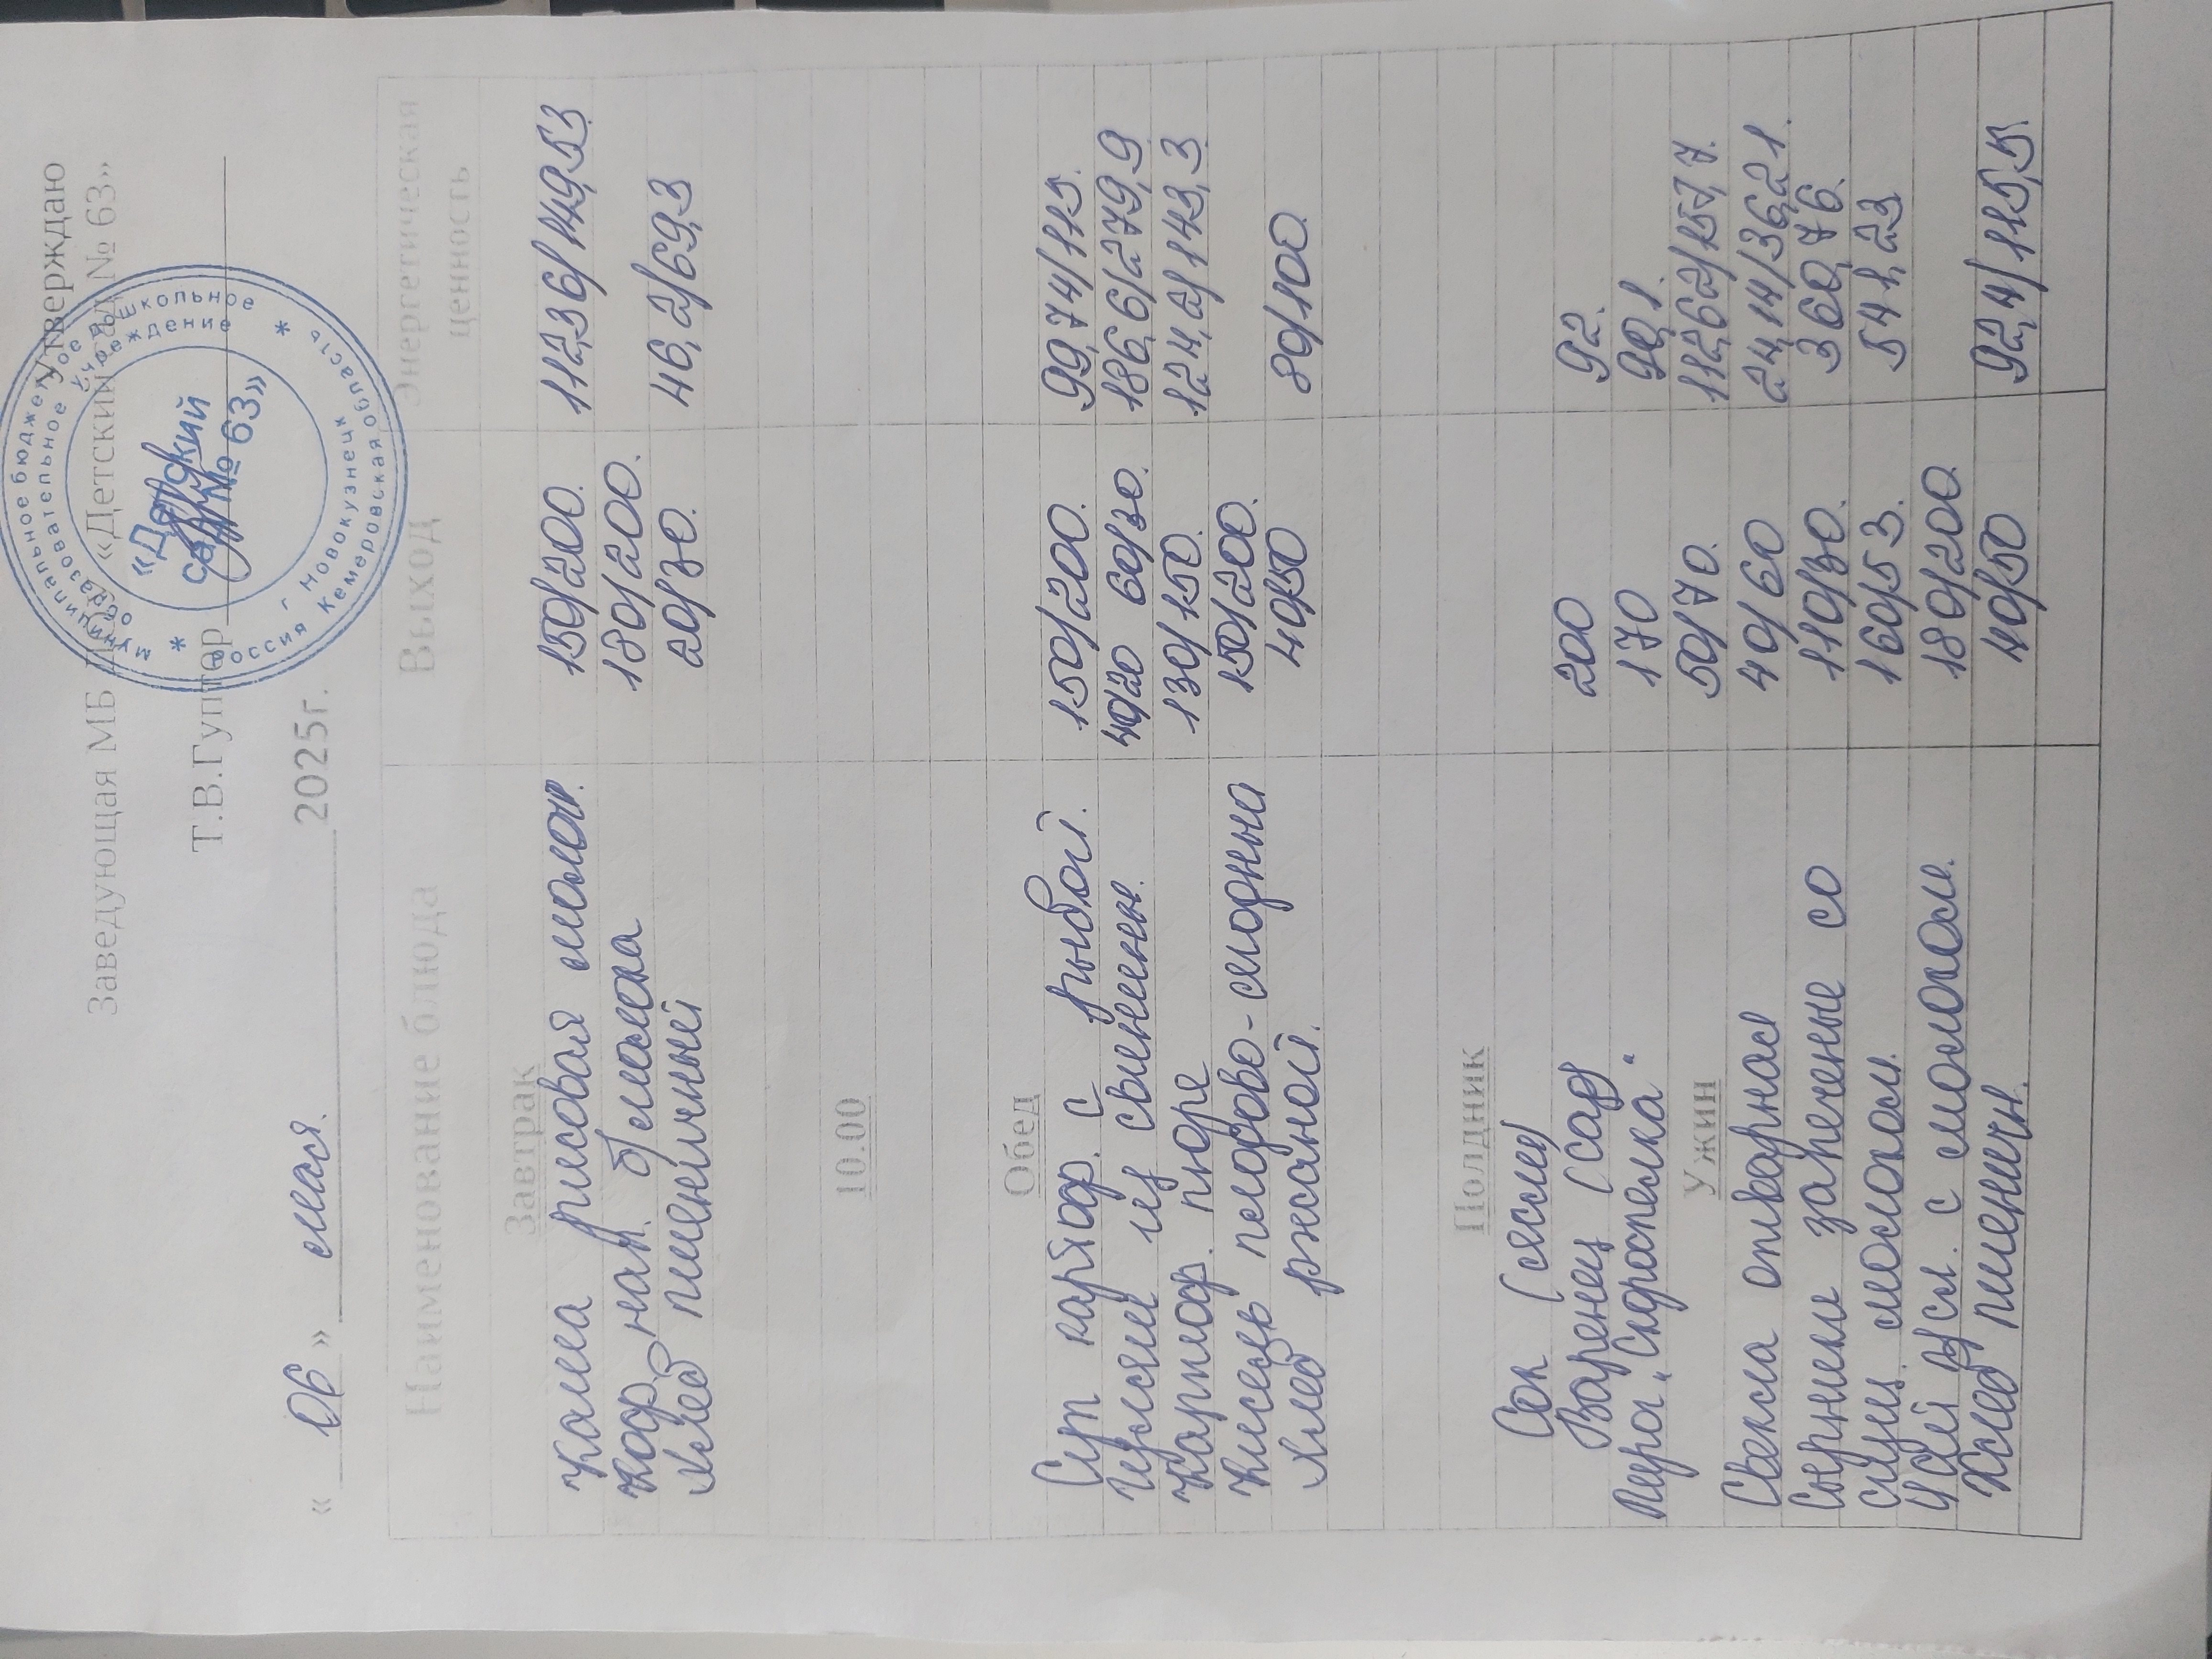 Утверждаю
Заведующая МБ ДОУ «Детский сад № 63»
Муниципальное бюджетное дошкольное
образовательное учреждение
«Детский
сад № 63»
г Новокузнецк
Россия Кемеровская область
Т.В.Гунтор
« 06 » мая. 2025г.
Наименование блюда Выход Энергетическая ценность
Завтрак
Каша рисовая молоч. 150/200. 112,36/149,53
Коф. нап. б/молока 180/200.
Хлеб пшеничный 20/30. 46,2/69,3
10.00
Обед
Суп картоф. с рыбой. 150/200. 99,74/115.
Гуляш из свинины. 40/20 60/30. 186,6/279,9
Картоф. пюре 130/150. 124,2/143,3
Кисель плодово-ягодный 150/200.
Хлеб ржаной. 40/50 80/100.
Полдник
Сок (ясли)
Варенец (сад) 200 92.
Пирог „Скороспелка" 170 90,1.
50/70. 112,62/157,7.
Ужин
Свекла отварная 40/60 24,14/36,21.
Сырники запеченые со 110/30. 360,76.
сгущ. молоком. 160/53. 541,23
Чай с молоком. 180/200
Хлеб пшеничн. 40/50 92,4/115,5.